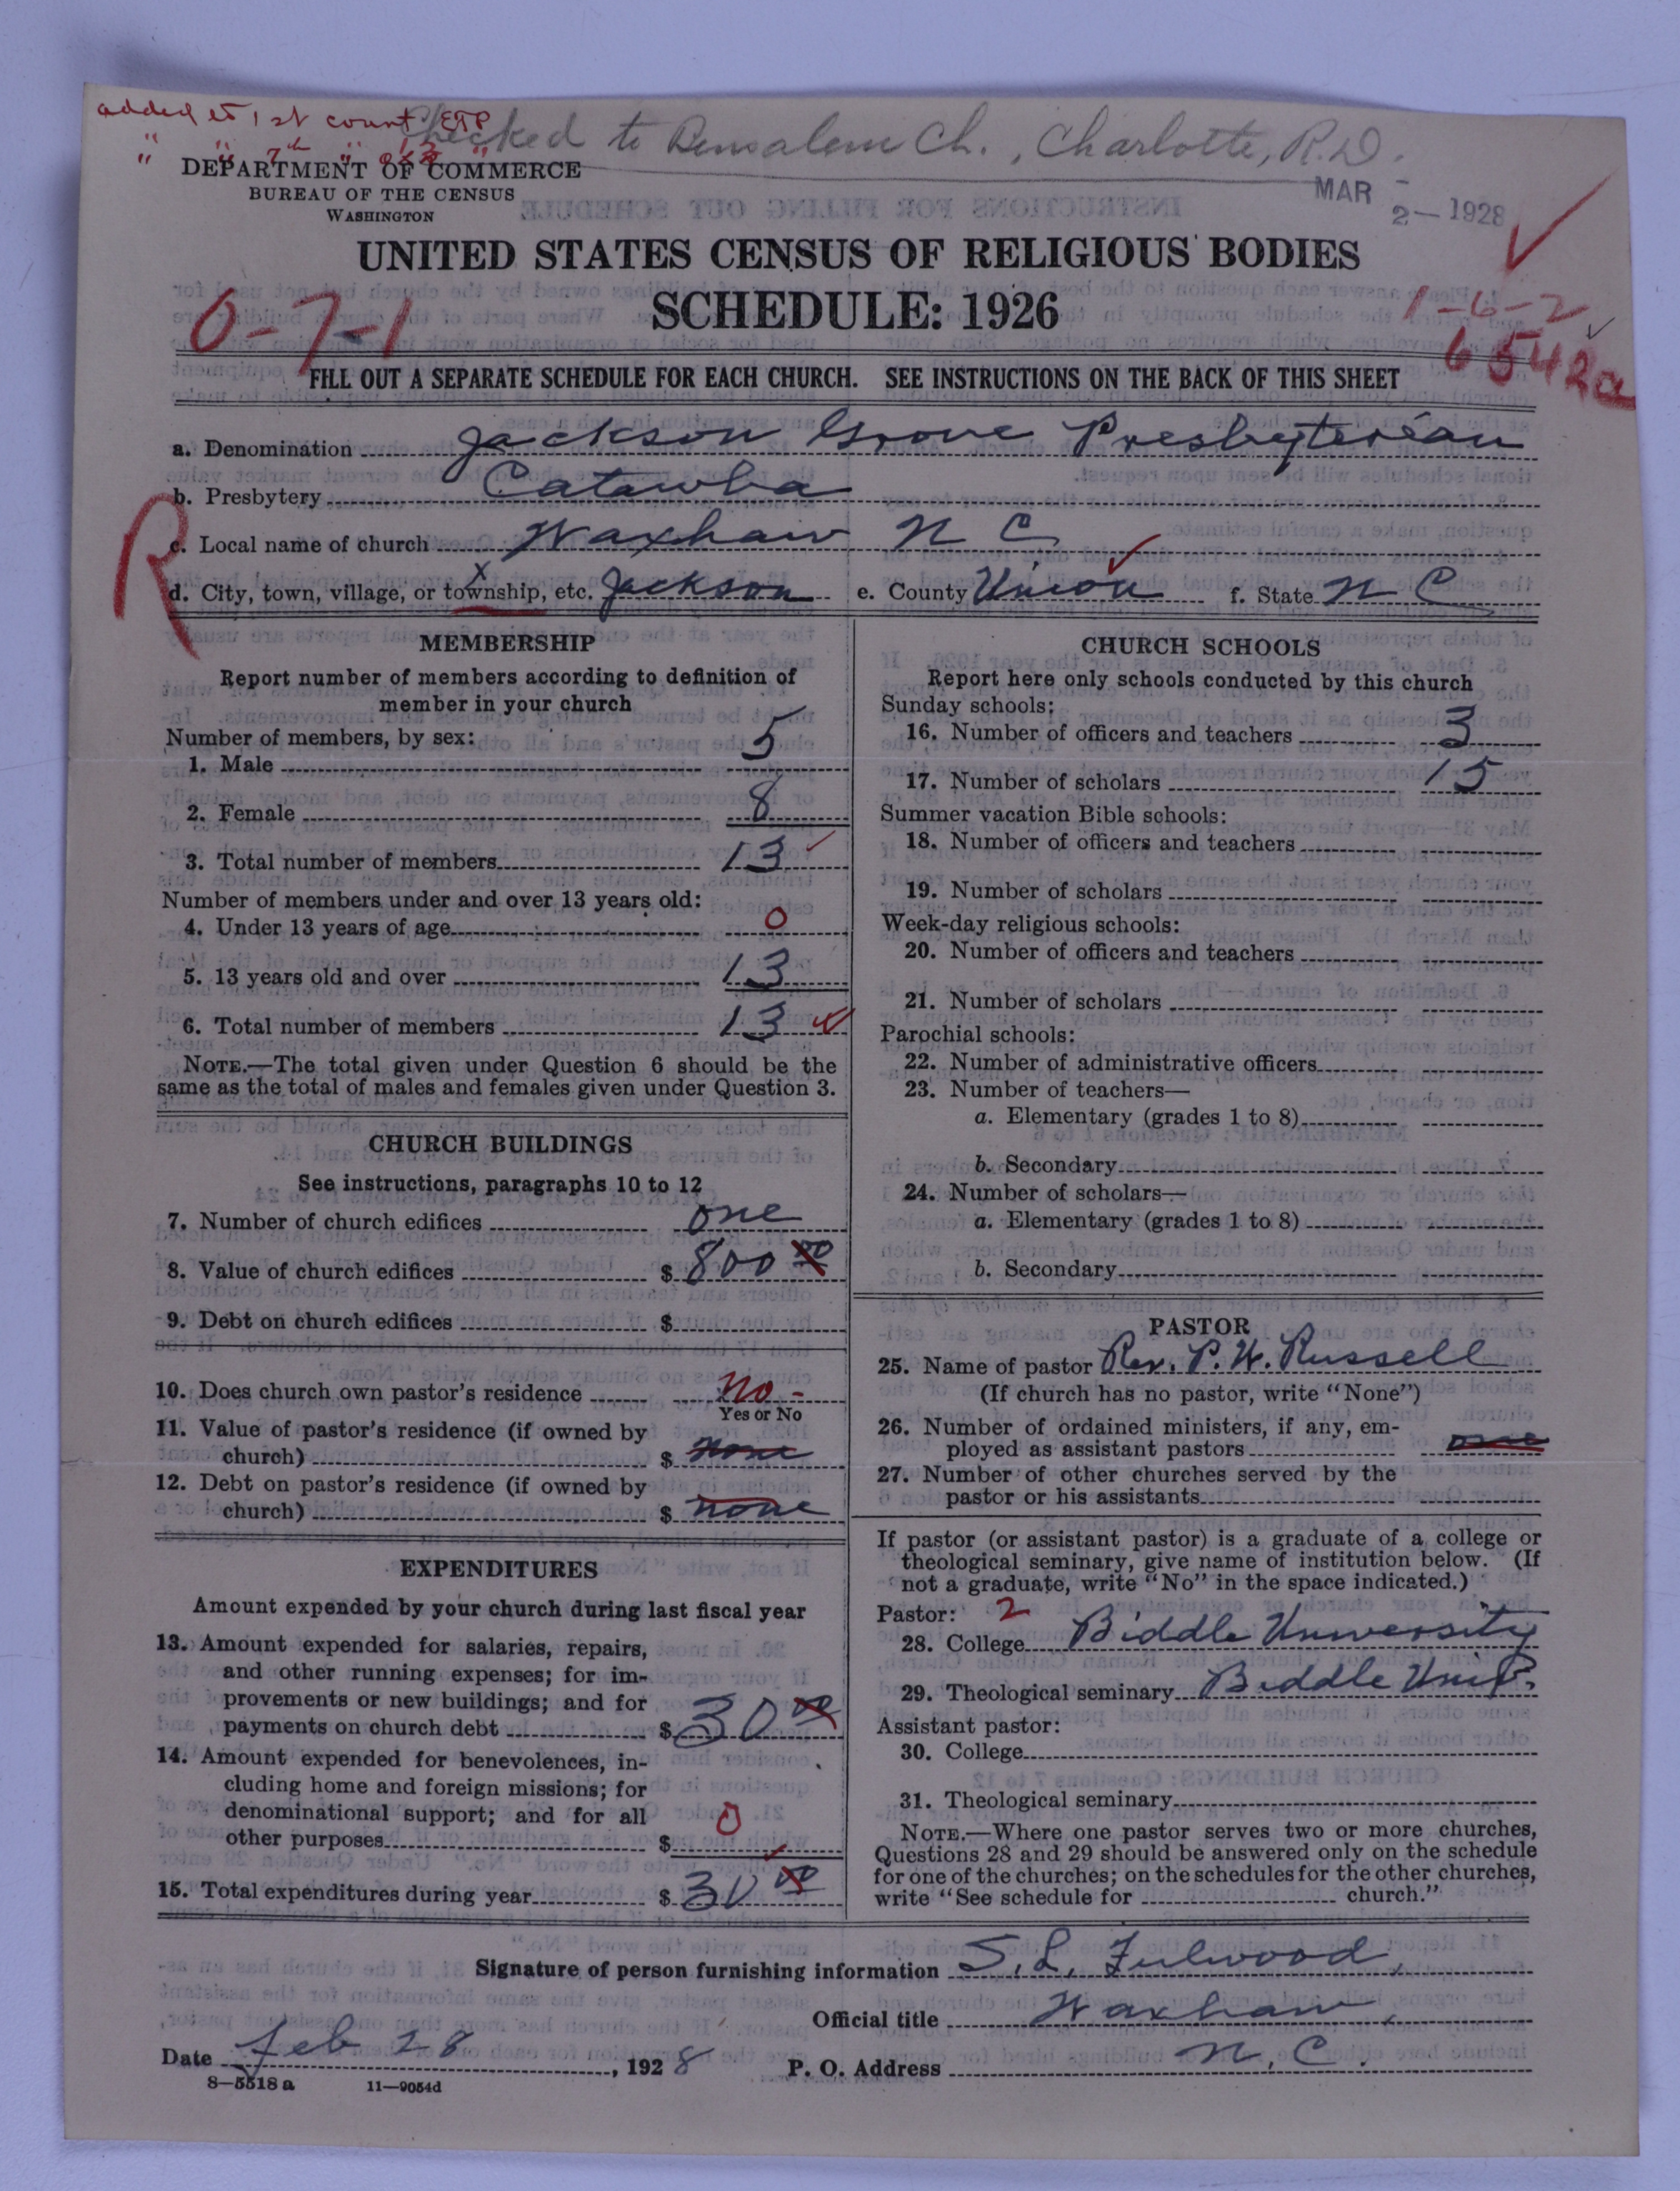 added to 1st count EGP
" " 7th " "
Checked to Bensalem Ch., Charlotte, R.D.
DEPARTMENT OF COMMERCE
BUREAU OF THE CENSUS
WASHINGTON
MAR 2 - 1928
UNITED STATES CENSUS OF RELIGIOUS BODIES
SCHEDULE: 1926
0-7-1
1-6-2
6542a
FILL OUT A SEPARATE SCHEDULE FOR EACH CHURCH. SEE INSTRUCTIONS ON THE BACK OF THIS SHEET
a. Denomination Jackson Grove Presbyterian
b. Presbytery Catawba
R
c. Local name of church Waxhaw N C
d. City, town, village, or township, etc. Jackson e. County Union f. State N C
MEMBERSHIP
Report number of members according to definition of
member in your church
Number of members, by sex:
1. Male 5
2. Female 8
3. Total number of members 13
Number of members under and over 13 years old:
4. Under 13 years of age 0
5. 13 years old and over 13
6. Total number of members 13
NOTE.—The total given under Question 6 should be the
same as the total of males and females given under Question 3.
CHURCH BUILDINGS
See instructions, paragraphs 10 to 12
7. Number of church edifices one
8. Value of church edifices $ 800 00
9. Debt on church edifices $
10. Does church own pastor's residence No -
Yes or No
11. Value of pastor's residence (if owned by
church) $ none
12. Debt on pastor's residence (if owned by
church) $ none
EXPENDITURES
Amount expended by your church during last fiscal year
13. Amount expended for salaries, repairs,
and other running expenses; for im-
provements or new buildings; and for
payments on church debt $ 30 00
14. Amount expended for benevolences, in-
cluding home and foreign missions; for
denominational support; and for all
other purposes $ 0
15. Total expenditures during year $ 30 00
CHURCH SCHOOLS
Report here only schools conducted by this church
Sunday schools:
16. Number of officers and teachers 3
17. Number of scholars 15
Summer vacation Bible schools:
18. Number of officers and teachers
19. Number of scholars
Week-day religious schools:
20. Number of officers and teachers
21. Number of scholars
Parochial schools:
22. Number of administrative officers
23. Number of teachers—
a. Elementary (grades 1 to 8)
b. Secondary
24. Number of scholars—
a. Elementary (grades 1 to 8)
b. Secondary
PASTOR
25. Name of pastor Rev. P. W. Russell
(If church has no pastor, write "None")
26. Number of ordained ministers, if any, em-
ployed as assistant pastors one
27. Number of other churches served by the
pastor or his assistants
If pastor (or assistant pastor) is a graduate of a college or
theological seminary, give name of institution below. (If
not a graduate, write "No" in the space indicated.)
Pastor: 2
28. College Biddle University
29. Theological seminary Biddle Univ.
Assistant pastor:
30. College
31. Theological seminary
NOTE.—Where one pastor serves two or more churches,
Questions 28 and 29 should be answered only on the schedule
for one of the churches; on the schedules for the other churches,
write "See schedule for church."
Signature of person furnishing information S. L. Fulwood,
Official title Waxhaw,
Date Feb 28, 1928 P. O. Address N. C.
8—5518 a 11—9054d